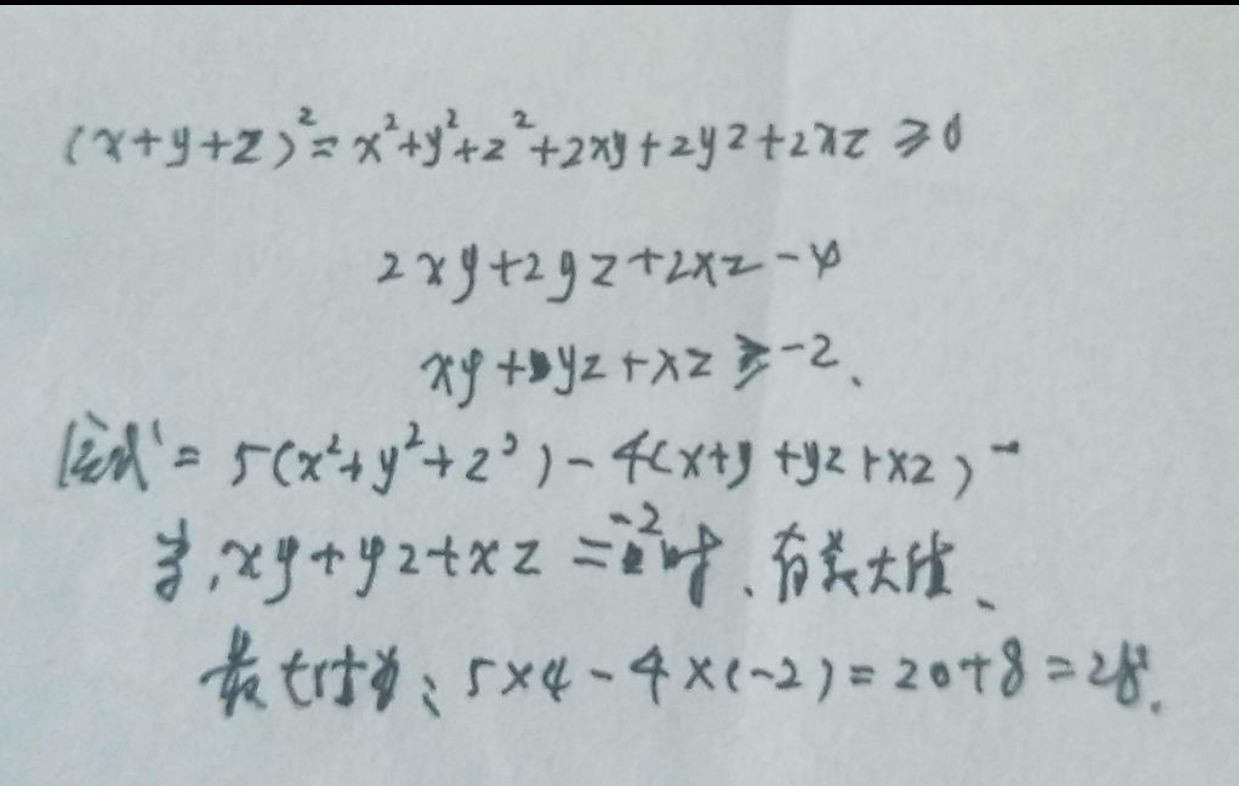 (x+y+z)²=x²+y²+z²+2xy+2yz+2xz≥0
2xy+2yz+2xz-4
xy+yz+xz≥-2、
原式=5(x²+y²+z²)-4(x+y+yz+xz)-
当,xy+yz+xz=-2时、有最大值、
最大值为:5×4-4×(-2)=20+8=28.